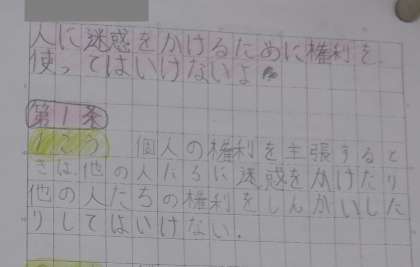 人に迷惑をかけるために権利を
使ってはいけないよ。
第1条
1こう 個人の権利を主張すると
きは他の人たちに迷惑をかけたり
他の人たちの権利をしんがいした
りしてはいけない.